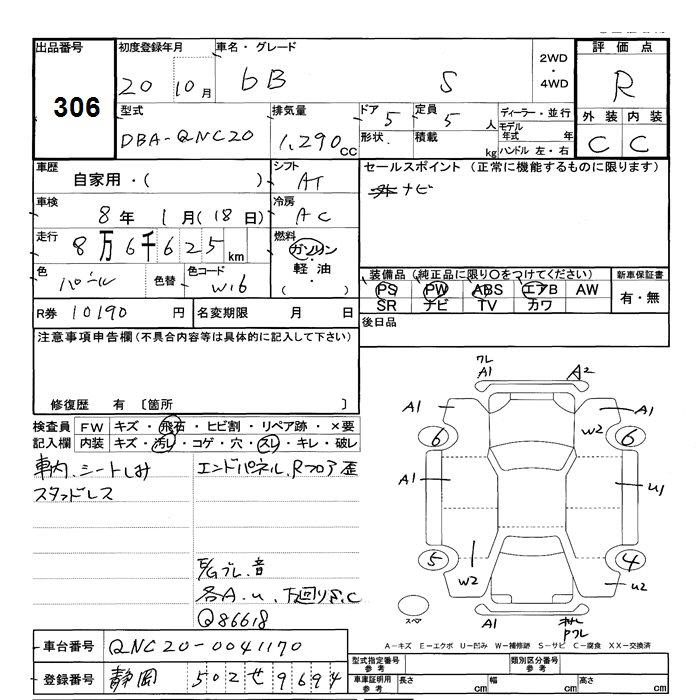 出品番号
306
初度登録年月
20 10月
車名・グレード
bB S
2WD
・
4WD
評価点
R
型式
DBA-QNC20
排気量
1,290cc
ドア 5
形状.
定員 5人
積載 kg
ディーラー・並行
モデル年式 年
ハンドル 左・右
外装 内装
C C
車歴
自家用・( )
シフト
AT
セールスポイント (正常に機能するものに限ります)
ナビ
車検
8年 1月(18日)
冷房
AC
走行
8万6千625km
燃料
ガソリン
・
軽油
( )
色
パール
色替
色コード
W16
装備品 (純正品に限り○をつけてください)
PS PW ABS エアB AW
SR ナビ TV カワ
新車保証書
有・無
R券 10190円
名変期限 月 日
後日品
注意事項申告欄(不具合内容等は具体的に記入して下さい)
修復歴 有 〔箇所 〕
検査員記入欄
FW キズ・飛石・ヒビ割・リペア跡・×要
内装 キズ・汚レ・コゲ・穴・スレ・キレ・破レ
車内、シートしみ
スタッドレス
エンドパネル、Rフロア歪
E/Gブレ、音
各A.u、下回りS、C
Q86618
ワレ
A1 A2
A1 A1
W2
6 6
A1 U1
5 4
W2 U2
スペア
A1
Pワレ
A-キズ E-エクボ U-凹み W-補修跡 S-サビ C-腐食 XX-交換済
車台番号 QNC20-0041170
登録番号 静岡 502 せ 9694
型式指定番号 参考
類別区分番号 参考
車庫証明用 参考
長さ cm 幅 cm 高さ cm